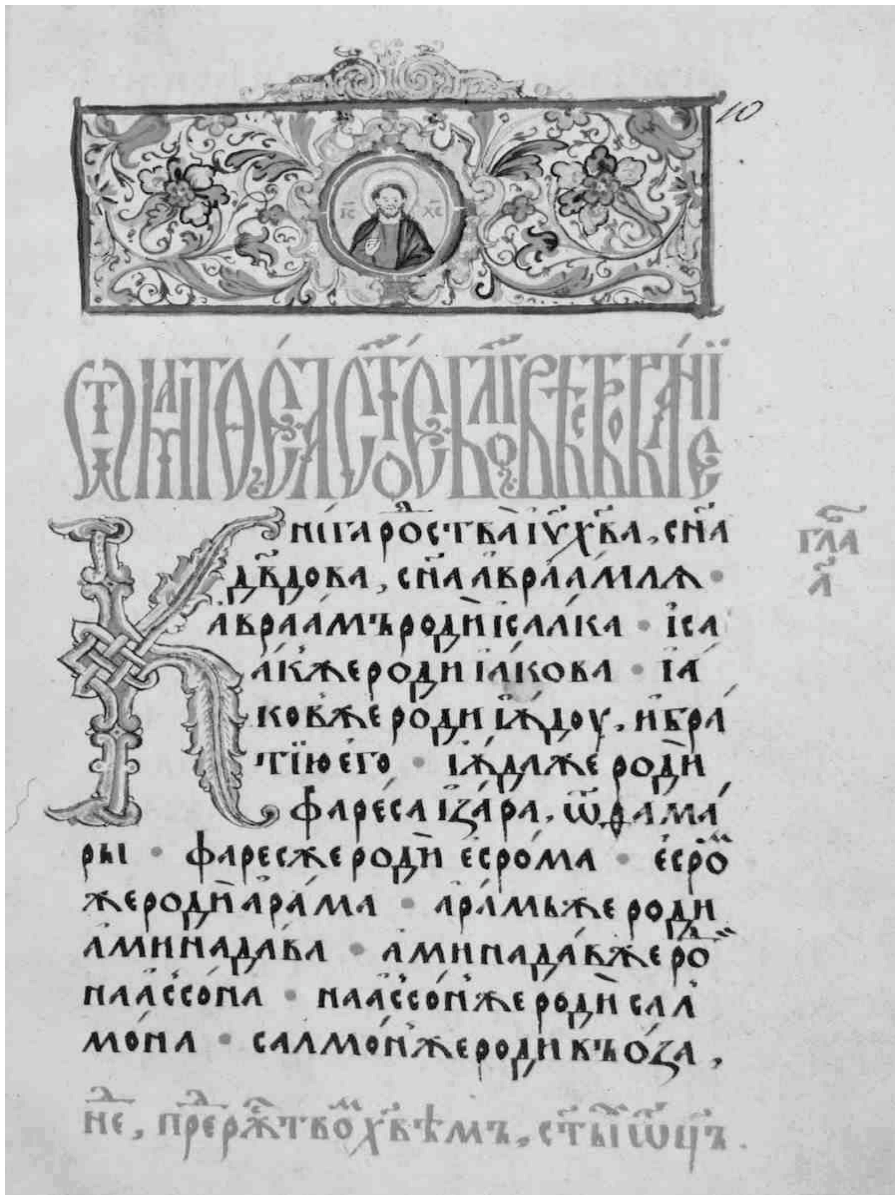 10
І҃С Х҃С
Ѿ МАТѲЕА СТ҃ОЕ БЛ҃ГОВѢСТВОВАНІЕ
Кни́га ро́ства і҃у х҃ва, сн҃а
дв҃дова, сн҃а авраа́млѧ •
авраа́мъ родѝ ісаа́ка • іса
а́к же роди іа́кова • іа́
ков же роди ію́доу, и бра́
тїю его̀ • ію́да же родѝ
фаре́са і за́ра, ѿ ѳама́
ры • фарес же родѝ есро́ма • есро́ⷨ
же родѝ ара́ма • ара́мь же роди
аминада́ва • аминада́в же роⷣ
наассо́на • наассо́н же родѝ сал
мо́на • салмо́н же роди въо́за,
гл҃а
а҃
неⷣ, преⷣ рⷤ҇твоⷨ хв҃ѣмъ, ст҃ыⷯ ѿц҃ъ.